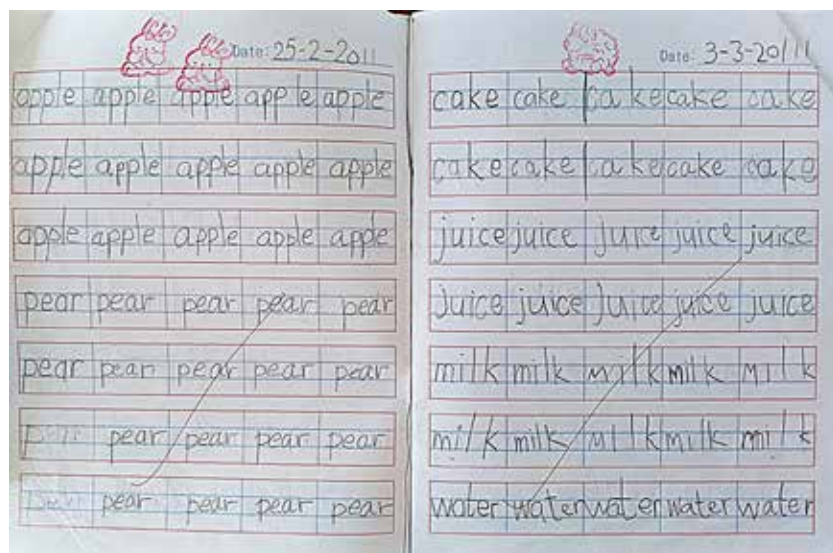 Date: 25-2-2011
apple apple apple apple apple
apple apple apple apple apple
apple apple apple apple apple
pear pear pear pear pear
pear pear pear pear pear
pear pear pear pear
pear pear pear pear
Date: 3-3-2011
cake cake cake cake cake
cake cake cake cake cake
juice juice juice juice juice
juice juice juice juice juice
milk milk milk milk milk
milk milk milk milk milk
water water water water water